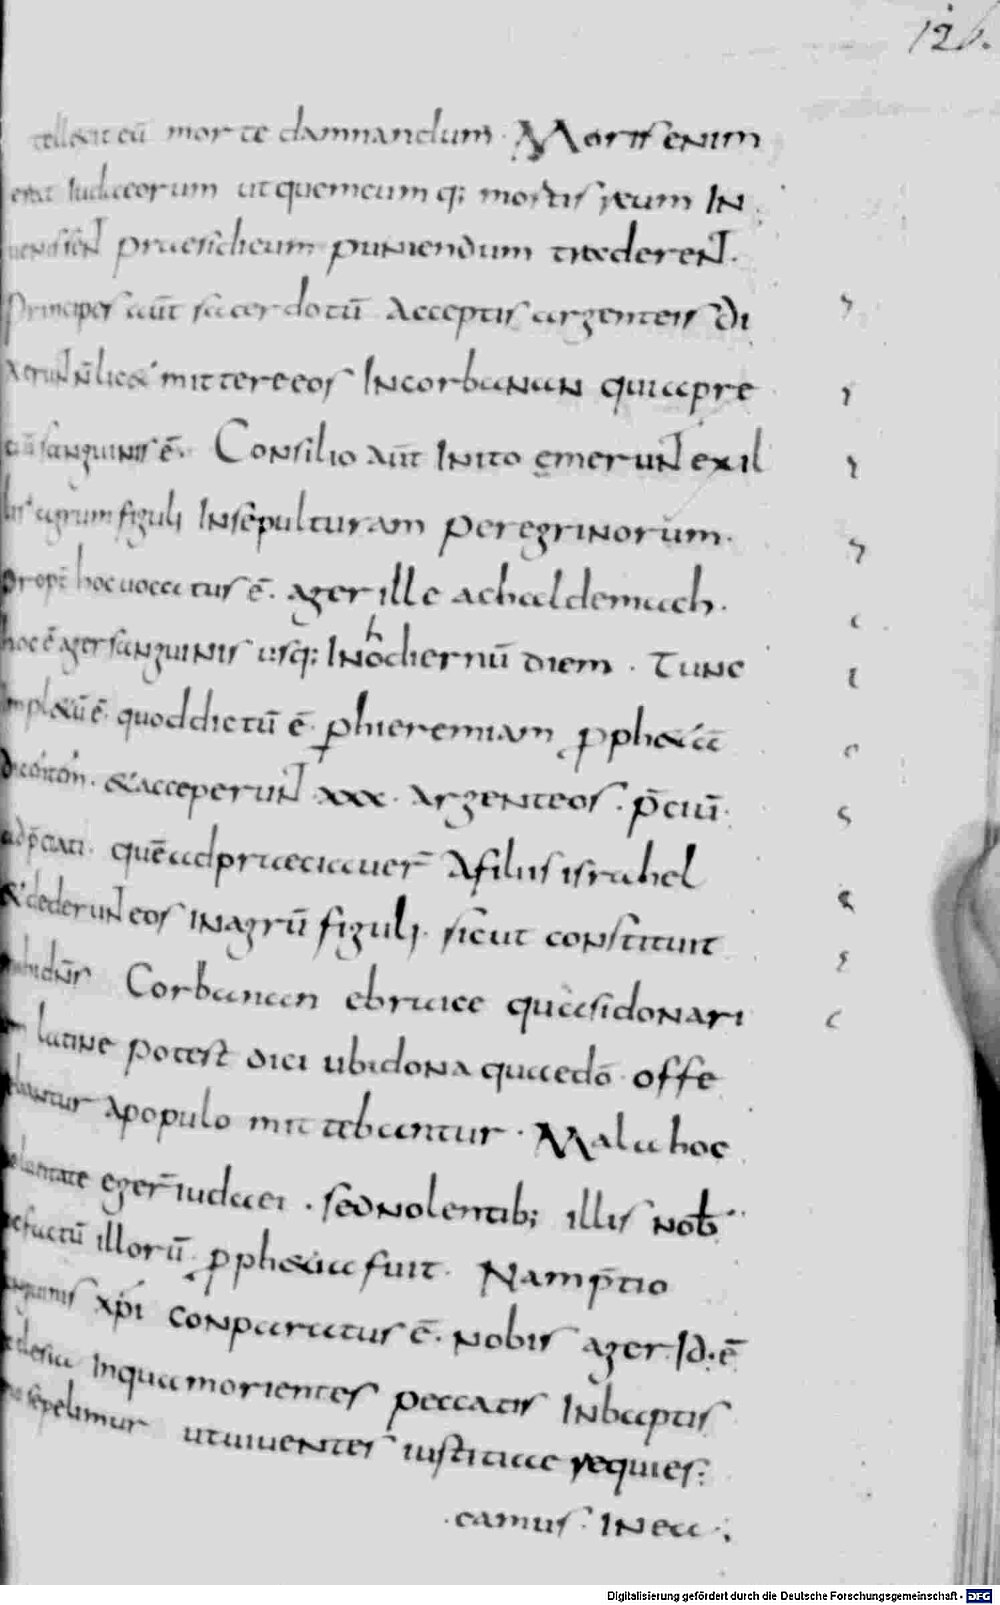 126.
tellexit eū morte damnandum. Mortis enim
erat Iudaeorum ut quemcumq; mortis reum In
uenissent praesidem puniendum traderent.
Principes aūt sacerdotū Acceptis argenteis di
xerunt n̄ lic& mittere eos In corbanan quia pre
ciū sanguinis ē. Consilio aūt Inito emerunt ex il
lis agrum figuli In sepulturam peregrinorum.
propt̄ hoc uocatus ē. ager ille acheldemach.
hoc ē ager sanguinis usq; In hodiernū diem. Tunc
impl&ū ē quod dictū ē. p hieremiam pph&ā
dicentem. & acceperunt xxx. Argenteos. p̄ciū
adp̄ciati. quē adpraeciauer̄ A filiis israhel
& dederunt eos in agrū figuli. sicut constituit
mihi dn̄s Corbanan ebraice quasi donari
um latine potest dici ubi dona quaedā offe
rebantur A populo mittebantur. Mala hoc
uoluntate eger̄ iudaei. sed nolentib; illis nob
pfactū illorū pph&ia fuit. Nam p̄tio
sanguinis xp̄i conparatus ē. nobis ager. Id. ē
ecclesia In qua morientes peccatis In baptis
mo sepelimur ut uiuentes iustitiae requies
camus. In ea.
Digitalisierung gefördert durch die Deutsche Forschungsgemeinschaft - DFG